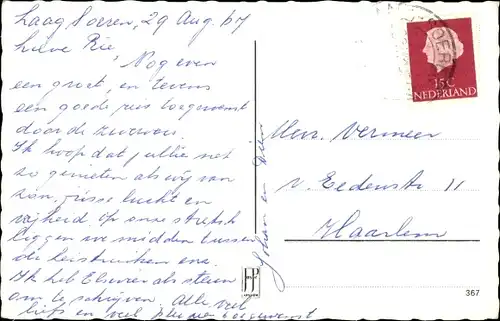 Laag Soeren, 29 Aug. 67
Lieve Rie
Nog even
een groet, en tevens
een goede reis toegewenst
door de
Ik hoop dat jullie net
zo genieten als wij van
zon, frisse lucht en
vrijheid. Op onze stretch
liggen we midden tussen
de heistruiken enz.
Ik heb Elsevier als steun
om te schrijven Alle veel
liefs en veel plezier toegewenst
Johan en Dien
15C
NEDERLAND
Mevr. Vermeer
v. Eedenstr 11
Haarlem
367